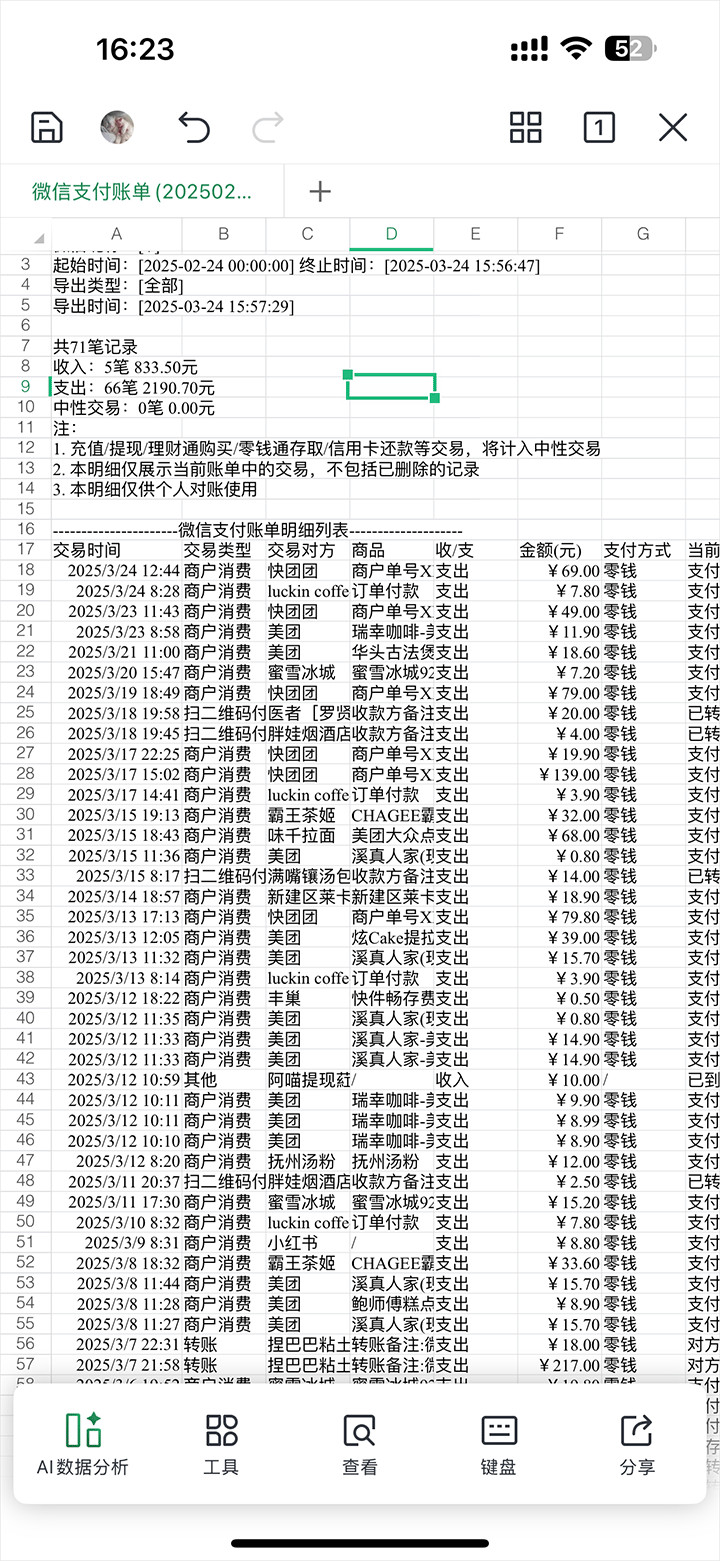 16:23
52
1
微信支付账单 (202502...
A B C D E F G
3 起始时间：[2025-02-24 00:00:00] 终止时间：[2025-03-24 15:56:47]
4 导出类型：[全部]
5 导出时间：[2025-03-24 15:57:29]
6
7 共71笔记录
8 收入：5笔 833.50元
9 支出：66笔 2190.70元
10 中性交易：0笔 0.00元
11 注：
12 1. 充值/提现/理财通购买/零钱通存取/信用卡还款等交易，将计入中性交易
13 2. 本明细仅展示当前账单中的交易，不包括已删除的记录
14 3. 本明细仅供个人对账使用
15
16 ----------------------微信支付账单明细列表--------------------
17 交易时间 交易类型 交易对方 商品 收/支 金额(元) 支付方式 当前
18 2025/3/24 12:44 商户消费 快团团 商户单号X 支出 ￥69.00 零钱 支付
19 2025/3/24 8:28 商户消费 luckin coffe 订单付款 支出 ￥7.80 零钱 支付
20 2025/3/23 11:43 商户消费 快团团 商户单号X 支出 ￥49.00 零钱 支付
21 2025/3/23 8:58 商户消费 美团 瑞幸咖啡- 支出 ￥11.90 零钱 支付
22 2025/3/21 11:00 商户消费 美团 华头古法煲 支出 ￥18.60 零钱 支付
23 2025/3/20 15:47 商户消费 蜜雪冰城 蜜雪冰城92 支出 ￥7.20 零钱 支付
24 2025/3/19 18:49 商户消费 快团团 商户单号X 支出 ￥79.00 零钱 支付
25 2025/3/18 19:58 扫二维码付 医者［罗贤 收款方备注 支出 ￥20.00 零钱 已转
26 2025/3/18 19:45 扫二维码付 胖娃烟酒店 收款方备注 支出 ￥4.00 零钱 已转
27 2025/3/17 22:25 商户消费 快团团 商户单号X 支出 ￥19.90 零钱 支付
28 2025/3/17 15:02 商户消费 快团团 商户单号X 支出 ￥139.00 零钱 支付
29 2025/3/17 14:41 商户消费 luckin coffe 订单付款 支出 ￥3.90 零钱 支付
30 2025/3/15 19:13 商户消费 霸王茶姬 CHAGEE霸 支出 ￥32.00 零钱 支付
31 2025/3/15 18:43 商户消费 味千拉面 美团大众点 支出 ￥68.00 零钱 支付
32 2025/3/15 11:36 商户消费 美团 溪真人家( 支出 ￥0.80 零钱 支付
33 2025/3/15 8:17 扫二维码付 满嘴镶汤包 收款方备注 支出 ￥14.00 零钱 已转
34 2025/3/14 18:57 商户消费 新建区莱卡 新建区莱卡 支出 ￥18.90 零钱 支付
35 2025/3/13 17:13 商户消费 快团团 商户单号X 支出 ￥79.80 零钱 支付
36 2025/3/13 12:05 商户消费 美团 炫Cake提拉 支出 ￥39.00 零钱 支付
37 2025/3/13 11:32 商户消费 美团 溪真人家( 支出 ￥15.70 零钱 支付
38 2025/3/13 8:14 商户消费 luckin coffe 订单付款 支出 ￥3.90 零钱 支付
39 2025/3/12 18:22 商户消费 丰巢 快件畅存费 支出 ￥0.50 零钱 支付
40 2025/3/12 11:35 商户消费 美团 溪真人家( 支出 ￥0.80 零钱 支付
41 2025/3/12 11:33 商户消费 美团 溪真人家- 支出 ￥14.90 零钱 支付
42 2025/3/12 11:33 商户消费 美团 溪真人家- 支出 ￥14.90 零钱 支付
43 2025/3/12 10:59 其他 阿喵提现 / 收入 ￥10.00 / 已到
44 2025/3/12 10:11 商户消费 美团 瑞幸咖啡- 支出 ￥9.90 零钱 支付
45 2025/3/12 10:11 商户消费 美团 瑞幸咖啡- 支出 ￥8.99 零钱 支付
46 2025/3/12 10:10 商户消费 美团 瑞幸咖啡- 支出 ￥8.90 零钱 支付
47 2025/3/12 8:20 商户消费 抚州汤粉 抚州汤粉 支出 ￥12.00 零钱 支付
48 2025/3/11 20:37 扫二维码付 胖娃烟酒店 收款方备注 支出 ￥2.50 零钱 已转
49 2025/3/11 17:30 商户消费 蜜雪冰城 蜜雪冰城92 支出 ￥15.20 零钱 支付
50 2025/3/10 8:32 商户消费 luckin coffe 订单付款 支出 ￥7.80 零钱 支付
51 2025/3/9 8:31 商户消费 小红书 / 支出 ￥8.80 零钱 支付
52 2025/3/8 18:32 商户消费 霸王茶姬 CHAGEE霸 支出 ￥33.60 零钱 支付
53 2025/3/8 11:44 商户消费 美团 溪真人家( 支出 ￥15.70 零钱 支付
54 2025/3/8 11:28 商户消费 美团 鲍师傅糕点 支出 ￥8.90 零钱 支付
55 2025/3/8 11:27 商户消费 美团 溪真人家( 支出 ￥15.70 零钱 支付
56 2025/3/7 22:31 转账 捏巴巴粘土 转账备注: 支出 ￥18.00 零钱 对方
57 2025/3/7 21:58 转账 捏巴巴粘土 转账备注: 支出 ￥217.00 零钱 对方
AI数据分析 工具 查看 键盘 分享